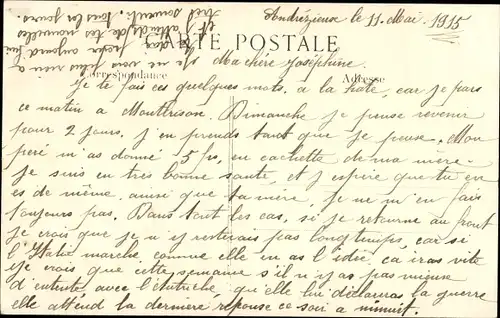 Andrézieux le 11 Mai 1915
CARTE POSTALE
Ma chère Joséphine
Correspondance Adresse
Je te fais ces quelques mots à la hate, car je pars
ce matin a Montbrison. Dimanche je pense revenir
pour 2 jours, j'en prends tant que je peuse. Mon
peré m'as donné 5 frs, en cachette de ma mère.
je suis en très bonne santé, et j'espère que tu en
es de même, ainsi que ta mère, je ne m'en fais
toujours pas. Dans tout les cas, si je retourne au front
je crois que je n'y resterais pas longtemps, car si
l'Italie marche comme elle en as l'idée, ca iras vite
Je crois que cette semaine s'il n'y as pas mieuse
d'entente avec l'Autriche qu'elle lui déclareras la guerre
elle attend la dernière réponse ce soir a minuit.
je ne vois plus rien a
te dire pour aujourd'hui
j'attends de tes nouvelles
tous les jours